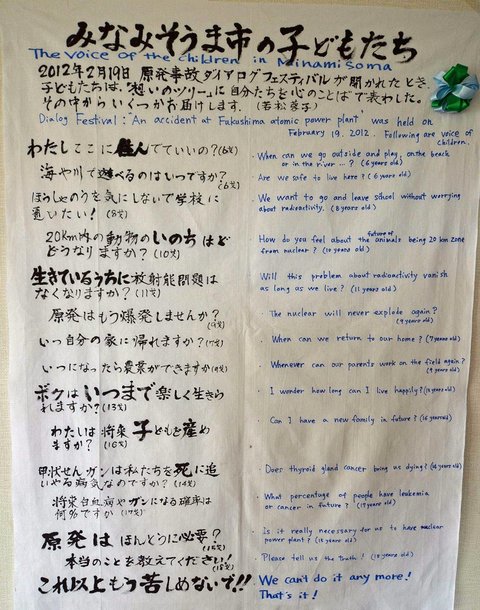 みなみそうま市の子どもたち
The voice of the children in Minamisoma
2012年2月19日 原発事故ダイアログフェスティバルが開かれたとき、
子どもたちは、"想いのツリー"に自分たちを心の"ことば"で表わした。
その中からいくつかお届けします。(若松蓉子)
Dialog Festival: "An accident at Fukushima atomic power plant" was held on
February 19. 2012. Following are voice of
children.
わたしここに住んでていいの?(6才)
海や川で遊べるのはいつですか?
(6才)
ほうしゃのうを気にしないで学校に
通いたい! (8才)
20km内の動物のいのちはど
どうなりますか? (10才)
生きているうちに放射能問題は
なくなりますか?(11才)
原発はもう爆発しませんか?
(9才)
いつ自分の家に帰れますか?(7才)
いつになったら農業ができますか(9才)
ボクはいつまで楽しく生きら
れますか?(13才)
わたしは将来子どもを産め
ますか? (16才)
甲状せんガンは私たちを死に追
いやる病気なのですか?(14才)
将来白血病やガンになる確率は
何%ですか(17才)
原発はほんとうに必要?
(15才)
本当のことを教えてください!
(18才)
これ以上もう苦しめないで!!
・When can we go outside and play, on the beach
or in the river ...? (6 years old)
・Are we safe to live here? (6 years old)
・We want to go and leave school without worrying
about radioactivity. (8 years old)
・How do you feel about the future of animals being 20 km zone
from nuclear? (10 years old)
・Will this problem about radioactivity vanish
as long as we live? (11 years old)
・The nuclear will never explode again?
(9 years old)
・When can we return to our home? (7 years old)
・Whenever can our parents work on the field again?
(9 years old)
・I wonder how long can I live happily? (13 years old)
・Can I have a new family in future? (16 years old)
・Does thyroid gland cancer bring us dying? (14 years old)
・What percentage of people have leukemia
or cancer in future? (17 years old)
・Is it really necessary for us to have nuclear
power plant? (15 years old)
・Please tell us the truth! (18 years old)
We can't do it any more!
That's it!